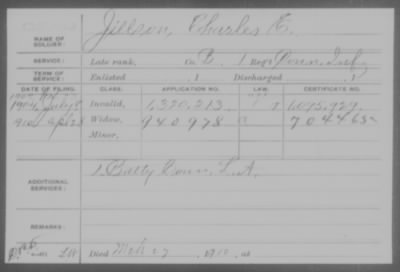 NAME OF SOLDIER: Jillson, Charles E.
SERVICE: Late rank, Co. B, 1 Reg't Conn. Inf.
TERM OF SERVICE: Enlisted , 1 Discharged , 1
DATE OF FILING. CLASS. APPLICATION NO. LAW. CERTIFICATE NO.
1904 July 8 Invalid, 1,320,213
1910 Apr 28 Widow, 940978 704465
Minor,
ADDITIONAL SERVICES: 1 Batty Conn. L.A.
REMARKS:
Died Mch 27, 1910, at